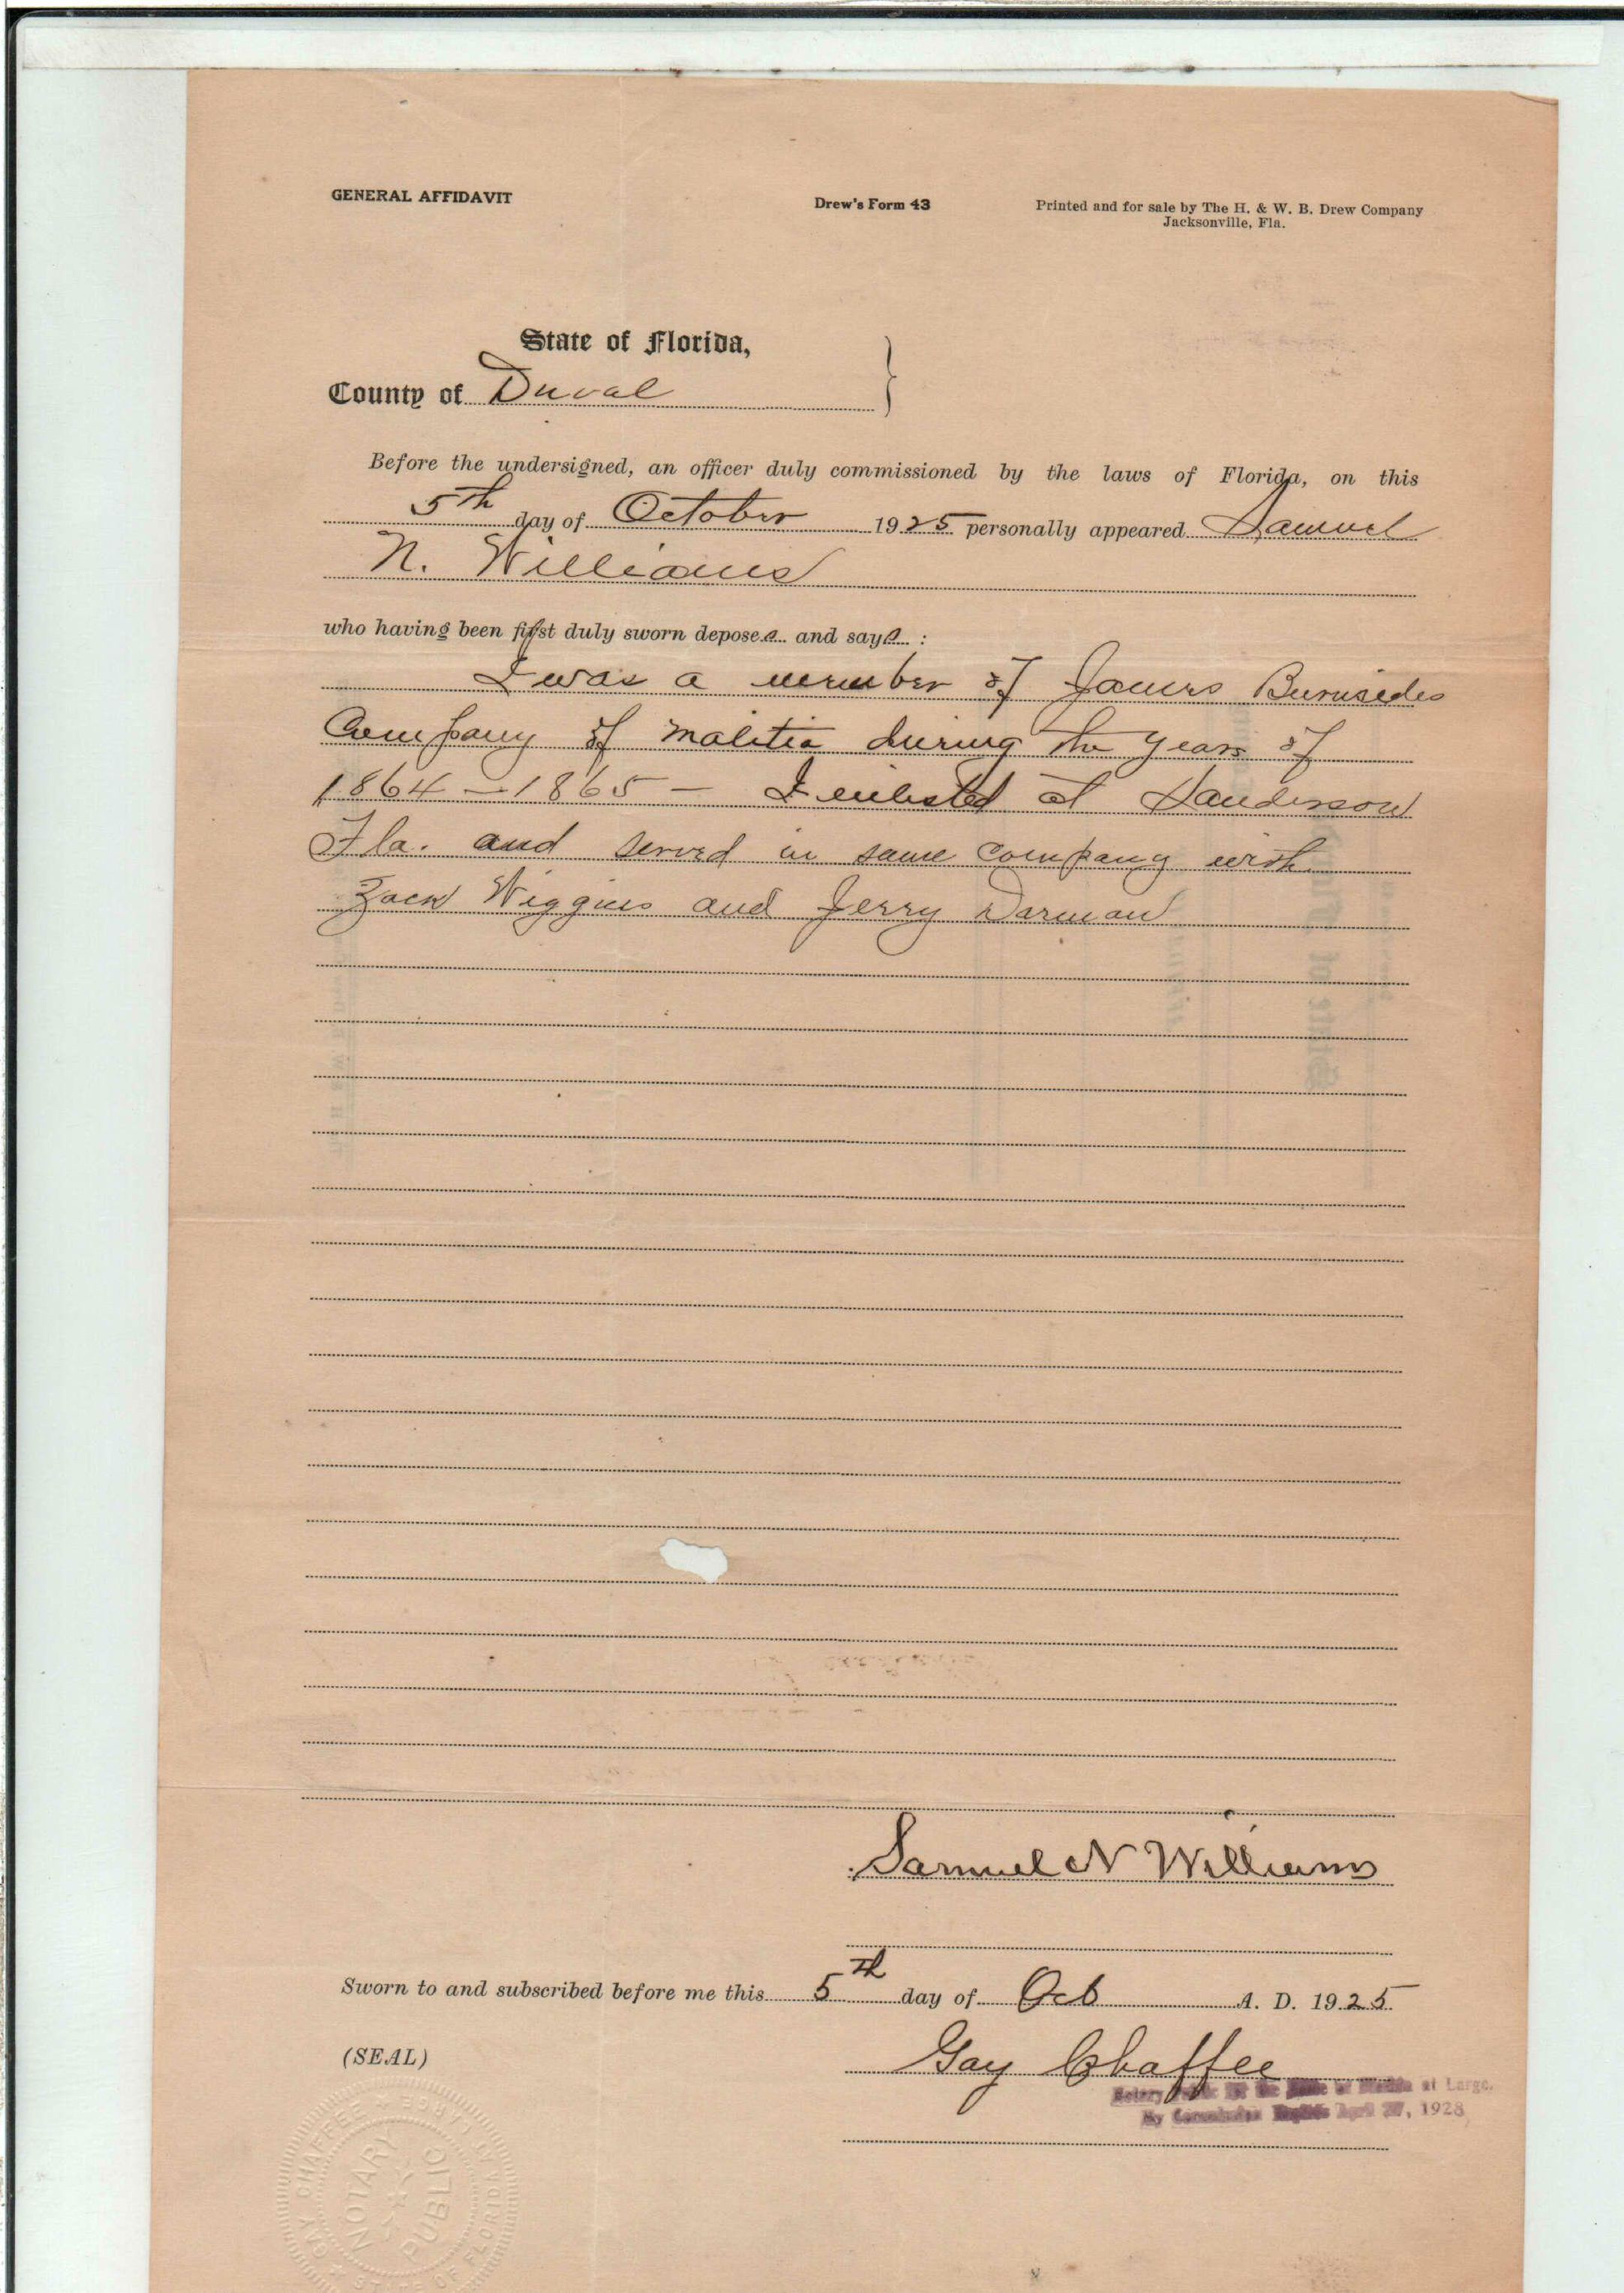 GENERAL AFFIDAVIT
Drew's Form 43
Printed and for sale by The H. & W. B. Drew Company
Jacksonville, Fla.
State of Florida,
County of Duval
Before the undersigned, an officer duly commissioned by the laws of Florida, on this
5th day of October 1925 personally appeared Samuel
N. Williams
who having been first duly sworn deposes and says :
I was a member of James Burnsides
Company of malitia during the years of
1864 – 1865 – I enlisted at Sanderson
Fla. and served in same company with
Zack Wiggins and Jerry Darman
Samuel N Williams
Sworn to and subscribed before me this 5th day of Oct A. D. 1925
(SEAL)
Gay Chaffee
Notary Public for the State of Florida at Large.
My Commission Expires April 27, 1928
GAY CHAFFEE
NOTARY
PUBLIC
STATE OF FLORIDA AT LARGE